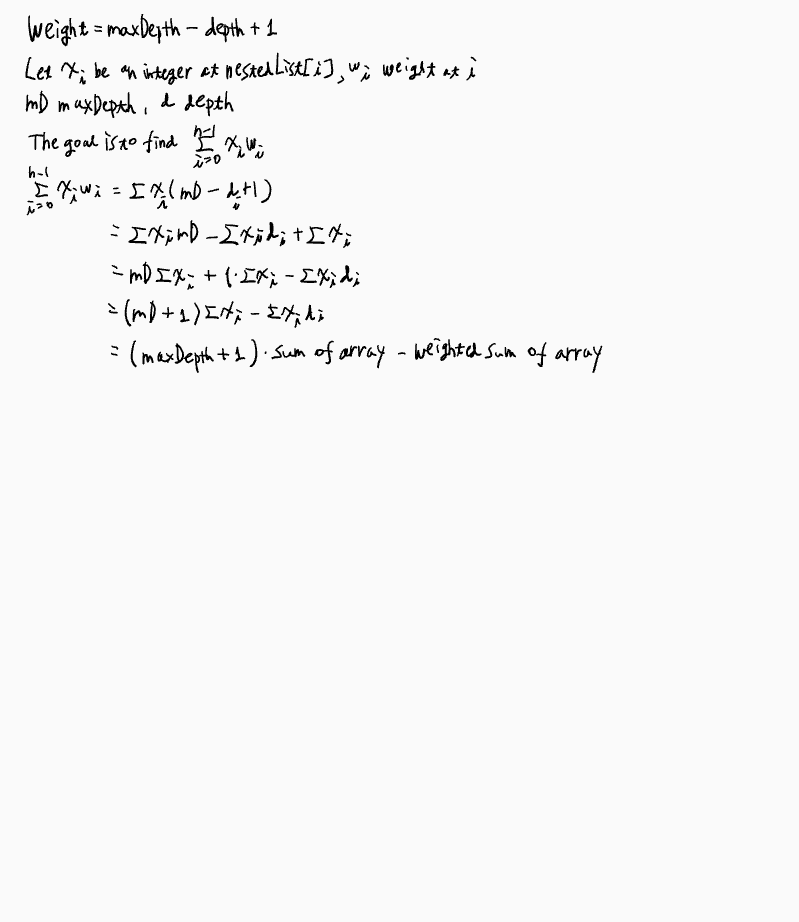 Weight = maxDepth - depth + 1
Let x_i be an integer at nestedList[i], w_i weight at i
mD maxDepth, d depth
The goal is to find Σ_{i=0}^{n-1} x_i w_i
Σ_{i=0}^{n-1} x_i w_i = Σ x_i (mD - d_i + 1)
= Σ x_i mD - Σ x_i d_i + Σ x_i
= mD Σ x_i + 1 · Σ x_i - Σ x_i d_i
= (mD + 1) Σ x_i - Σ x_i d_i
= (maxDepth + 1) · sum of array - weighted sum of array